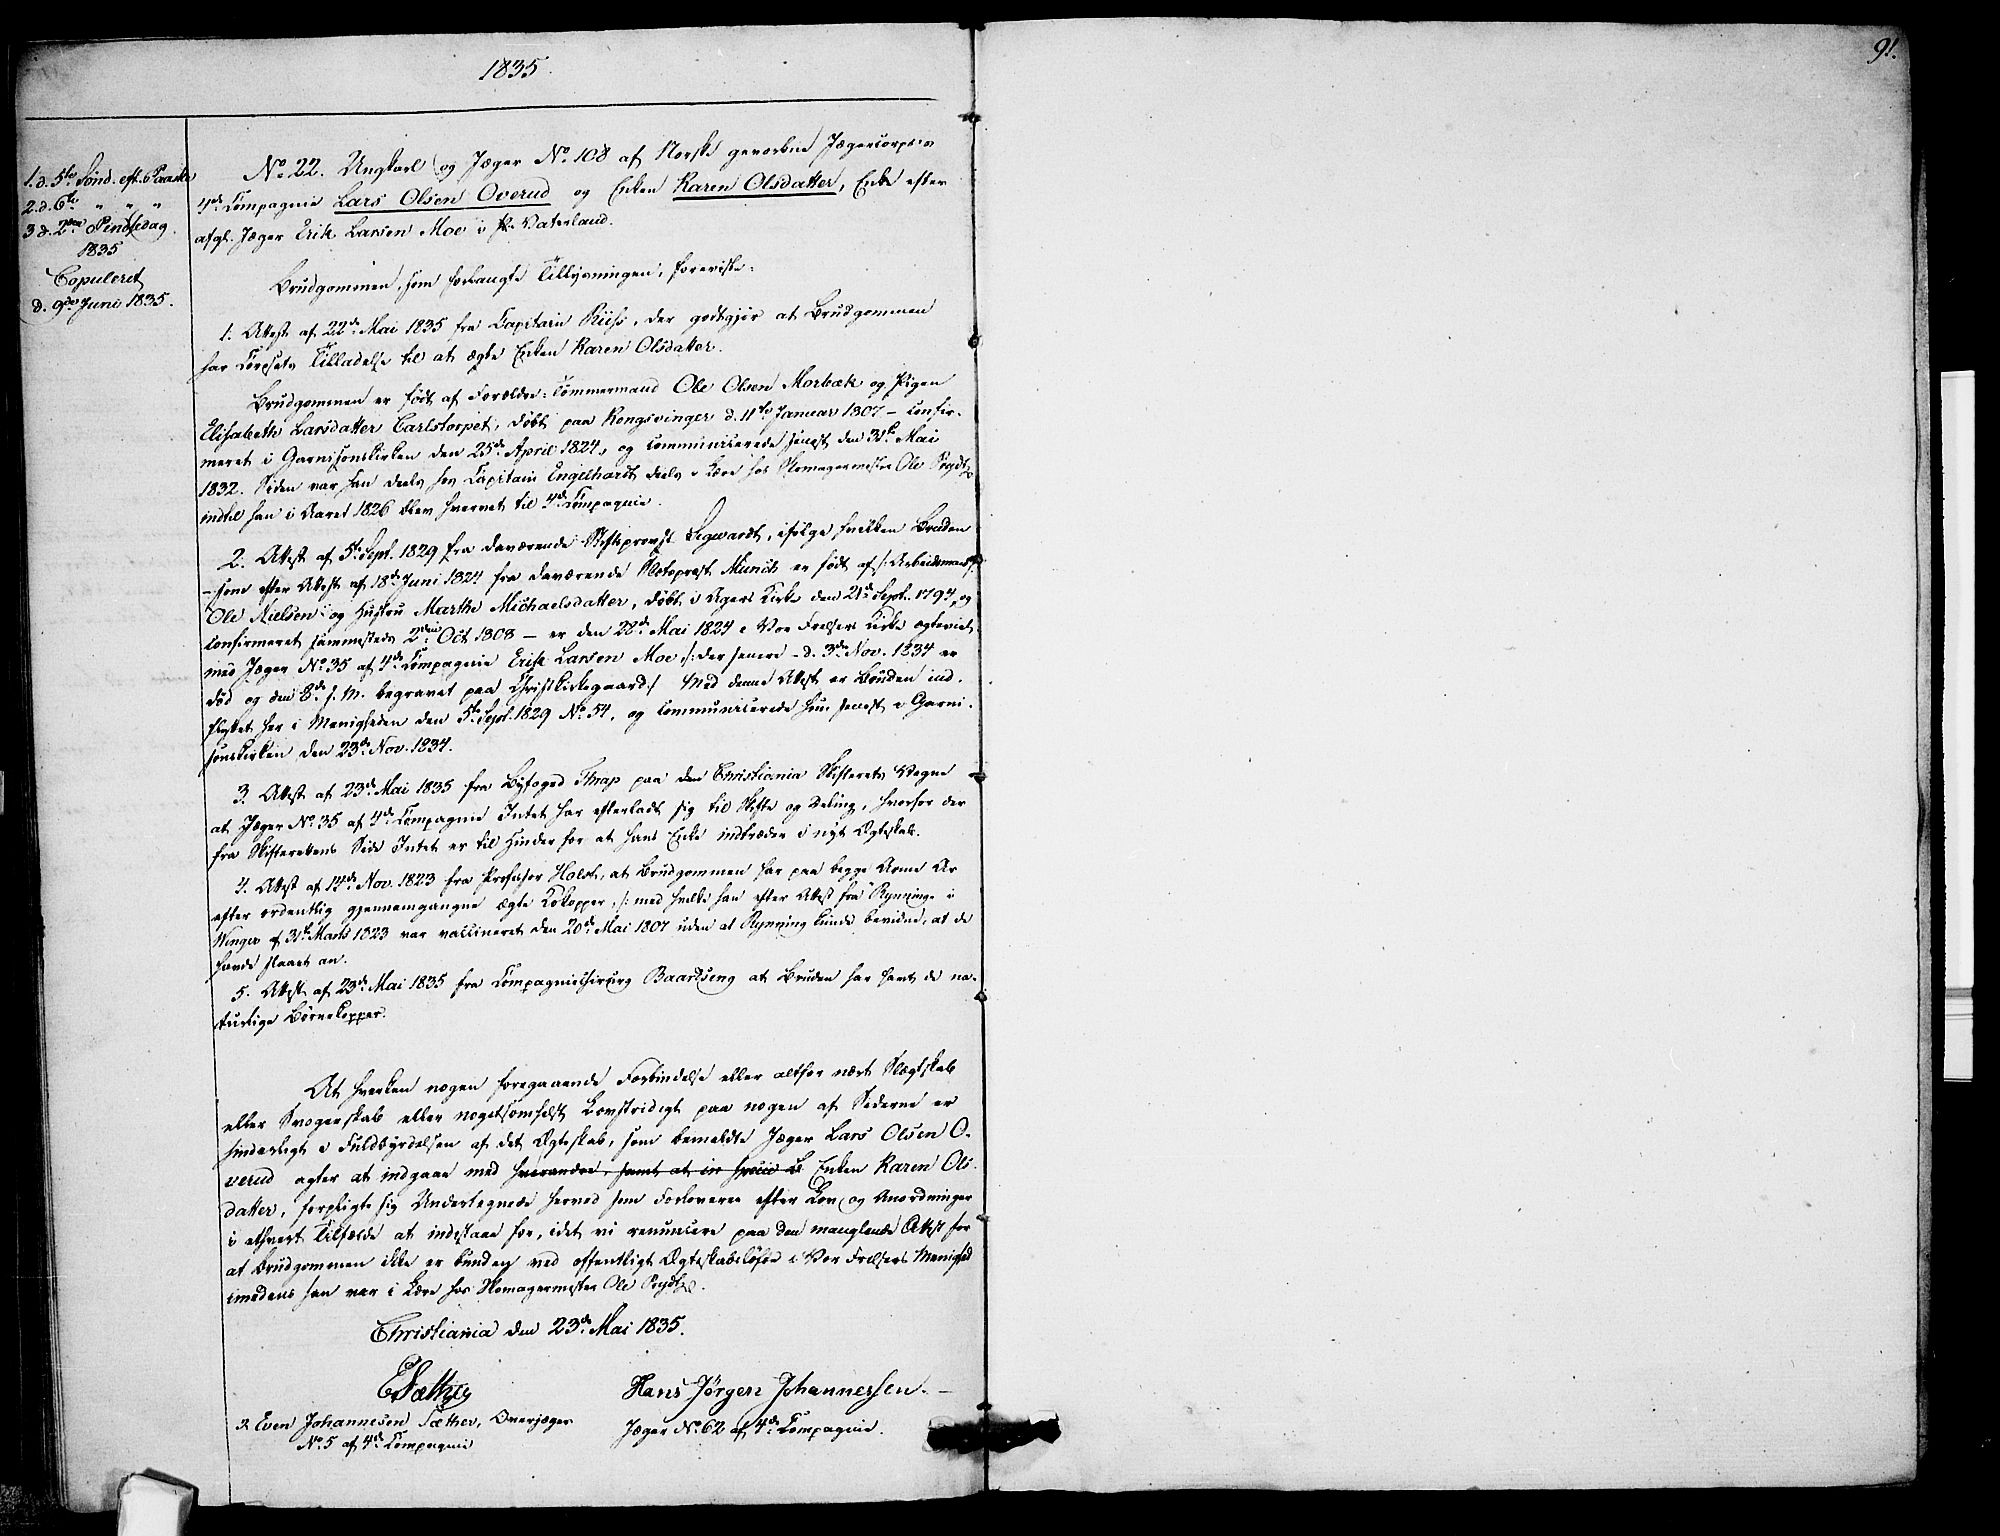 1835.
91.
1. d. 5te Sönd. eft. Paaske
2. d. 6te " " "
3. d. 2den Pindsedag
1835
Copuleret
d. 9de Juni 1835.
No. 22. Ungkarl og Jæger No. 108 af Norske gevorbne Jægercorps's
4de Compagnie Lars Olsen Overud og Enken Karen Olsdatter, Enke efter
afgl. Jæger Erik Larsen Moe i Vaterland.
Brudgommen, som forlangte Tillysningen, foreviste:
1. Attest af 22de Mai 1835 fra Capitain Riis, der godtgjør at Brudgommen
har Corpsets Tilladelse til at ægte Enken Karen Olsdatter.
Brudgommen er født af Forældre: Tømmermand Ole Olsen Morbæk og Pigen
Elisabeth Larsdatter Carlstorpet, døbt paa Kongsvinger d. 11te Januar 1807 - confir-
meret i Garnisonskirken den 25de April 1824, og communicerede senest den 31te Mai
1832. Siden var han deels hos Capitain Engelhardt deels i Lære hos Skomagermester Ole Prydtz
indtil han i Aaret 1826 blev hvervet til 4de Compagnie.
2. Attest af 5te Sept. 1829 fra daværende Stiftsprovst Sigwardt, ifølge hvilken Bruden
- som efter Attest af 18de Juni 1824 fra daværende Slotsprest Münch er født af /: Arbeidsmand
Ole Nielsen :/ og Hustru Marthe Michaelsdatter, døbt i Agers Kirke den 21de Sept. 1794, og
confirmeret sammesteds 2den Oct 1808 - er den 22de Mai 1824 i Vor Frelsers Kirke ægteviet
med Jæger No. 35 af 4de Compagnie Erik Larsen Moe, /: der senere - d. 3de Nov. 1834 er
død og den 8de s. M. begravet paa Christkirkegaard :/ Med denne Attest er Bruden ind-
flyttet her i Menigheden den 5te Sept. 1829 No. 54, og communicerede hun senest i Garni-
sonskirken den 23de Nov. 1834.
3. Attest af 23de Mai 1835 fra Byfoged Thrap paa den Christiania Skifterets Vegne
at Jæger No. 35 af 4de Compagnie Intet har efterladt sig til Skifte og Deling, hvorfor der
fra Skifterettens Side Intet er til Hinder for at hans Enke indtræder i nyt Ægteskab.
4. Attest af 14de Nov. 1823 fra Professor Holst, at Brudgommen har paa begge Arme Ar
efter ordentlig gjennemgangne ægte Kokopper, /: med hvilke han efter Attest fra Rynning i
Winger af 31te Marts 1823 var vaccineret den 20de Mai 1807 uden at Rynning kunde bevidne, at de
havde slaaet an.
5. Attest af 23de Mai 1835 fra Compagniechirurg Baardseng at Bruden har havt de na-
turlige Børnekopper.
At hverken nogen foregaaende Forbindelse eller altfor nært Slægtskab
eller Svogerskab eller nogetsomhelst Lovstridigt paa nogen af Siderne er
hinderligt i Fuldbyrdelsen af det Ægteskab, som bemeldte Jæger Lars Olsen O-
verud agter at indgaae med hverandre, samt at in specie Enken Karen Ols-
datter, forpligte sig Undertegnede herved som Forlovere efter Lov og Anordninger
i ethvert Tilfælde at indestaae for, idet vi renuncere paa den manglende Attest for
at Brudgommen ikke er bunden ved offentligt Ægteskabsløfte i Vor Frelsers Menighed
imedens han var i Lære hos Skomagermester Ole Prydtz.
Christiania den 23de Mai 1835.
ESæther
Hans Jörgen Johannessen.
Even Johannesen Sæther, Overjæger
No. 5 af 4de Compagnie
Jæger No. 62 af 4de Compagnie.